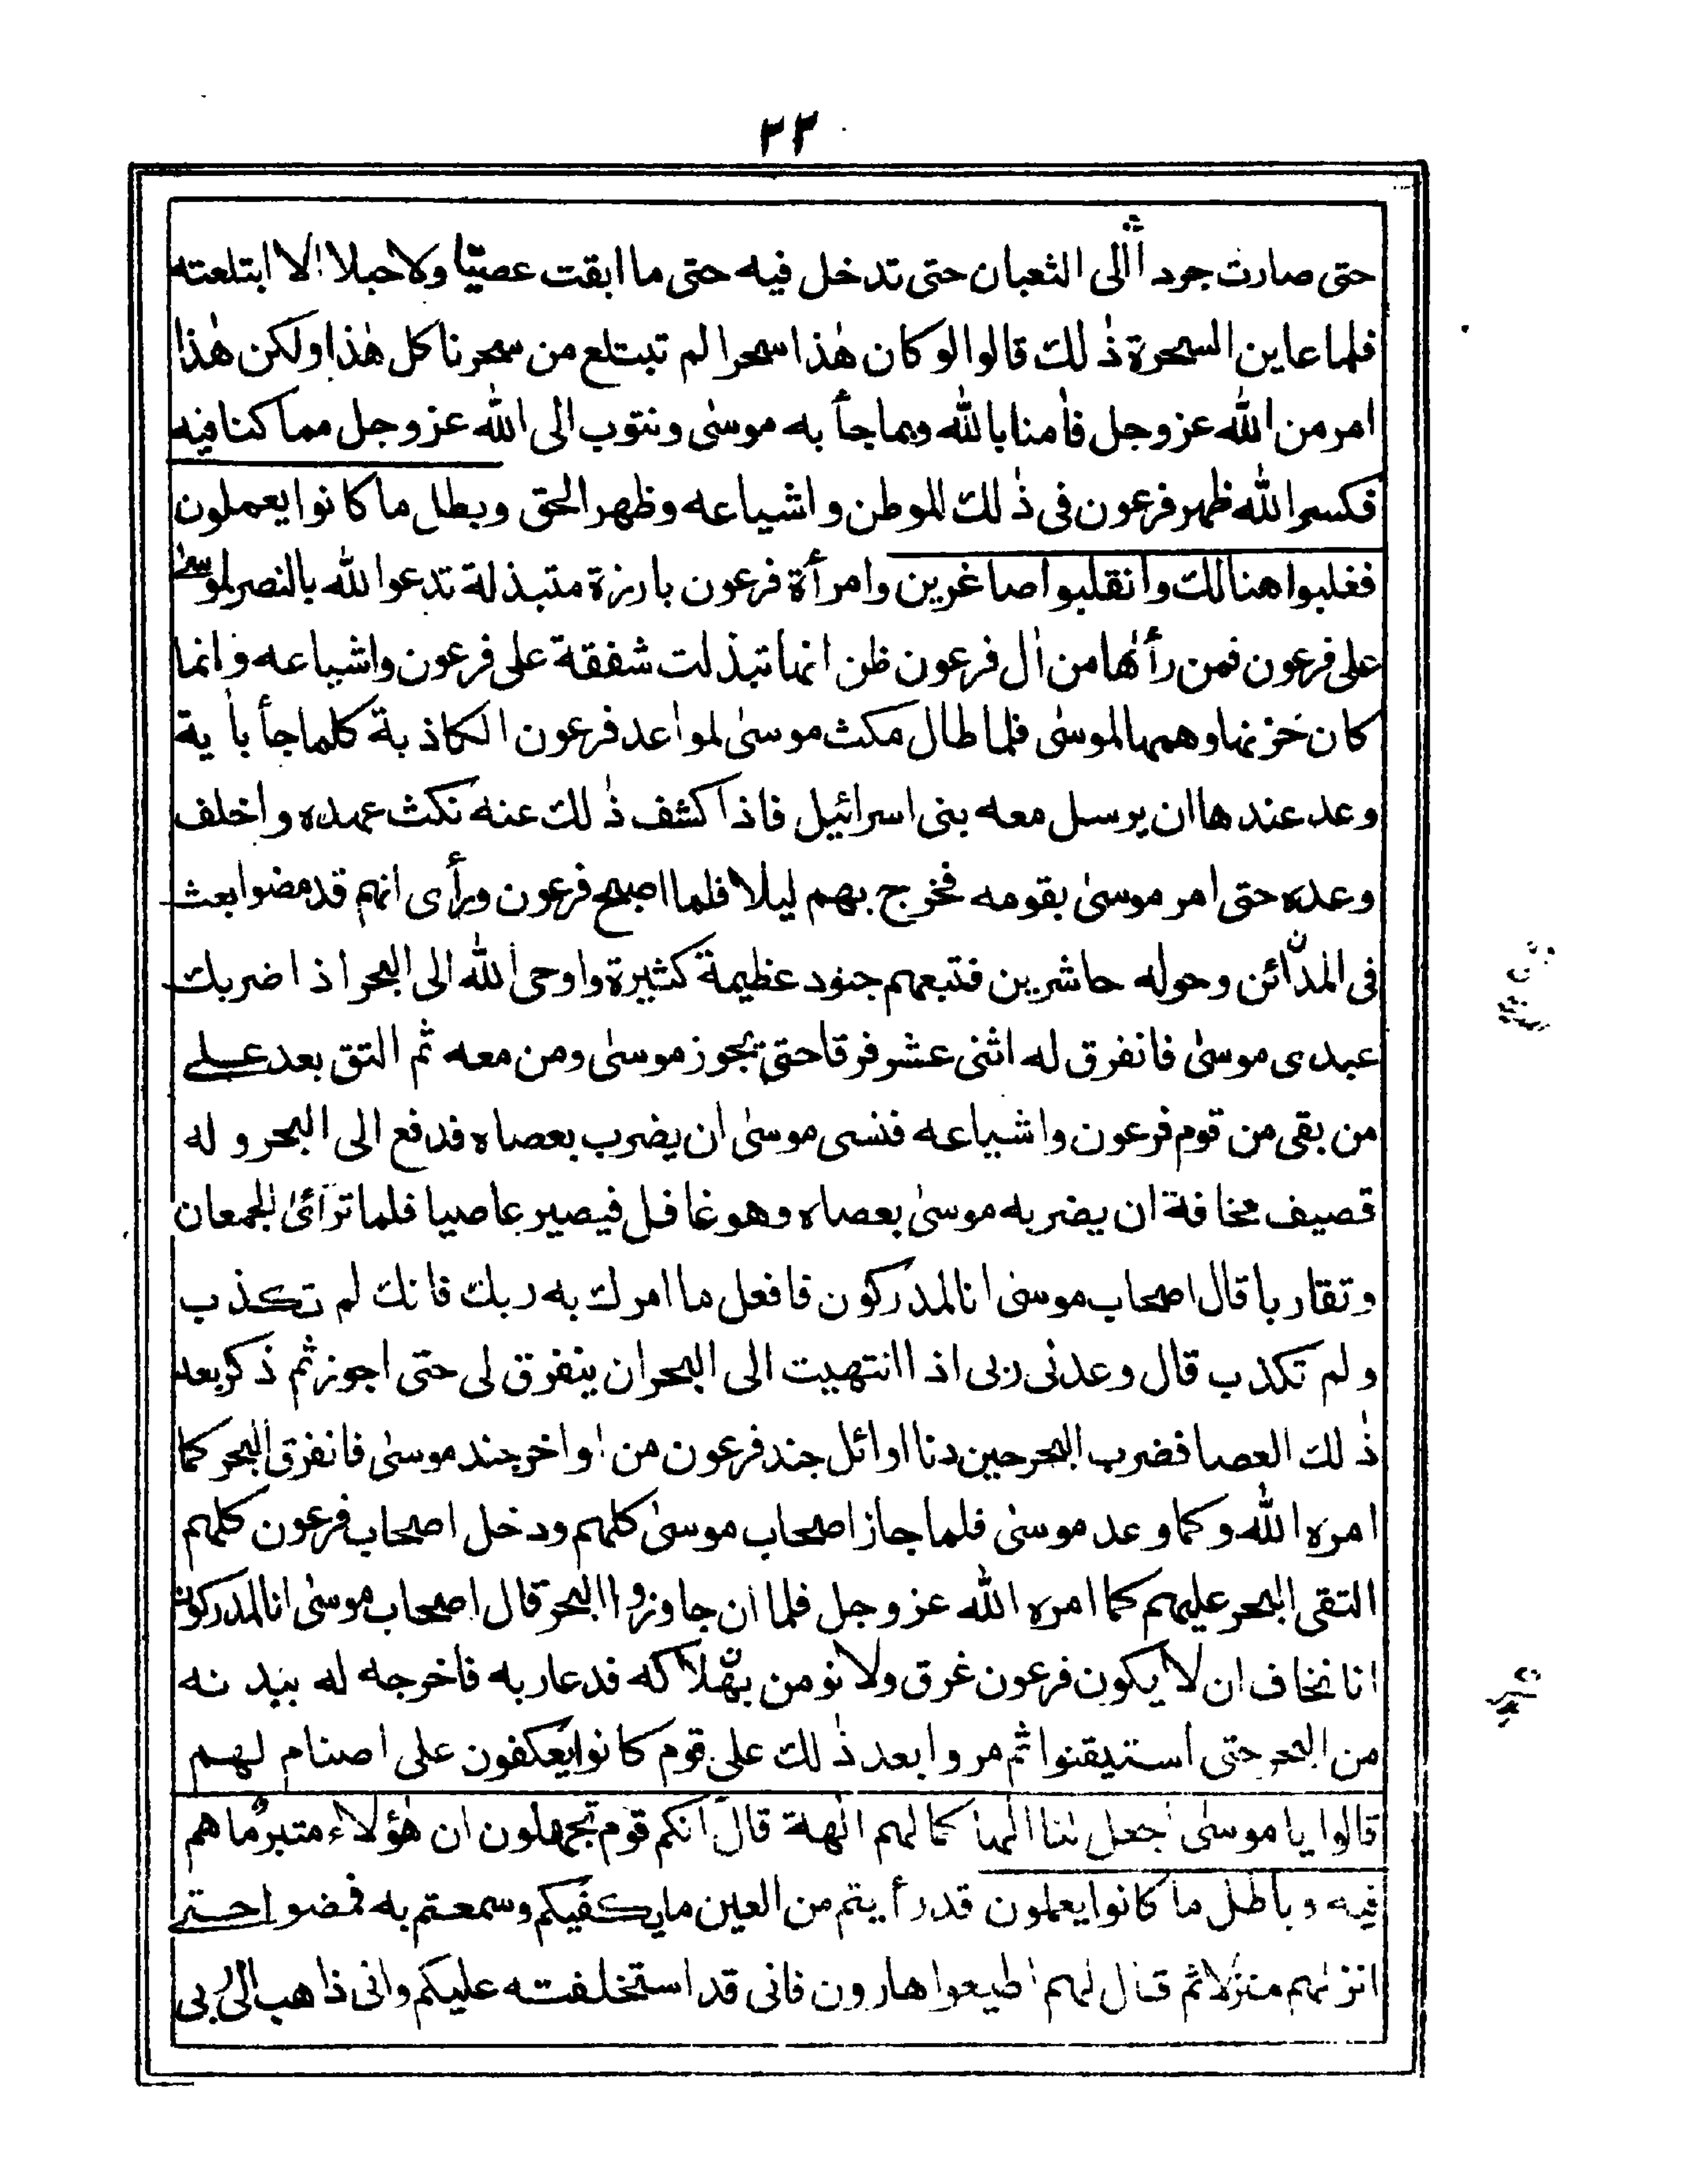 ٢٣
حتى صارت جردا الى الثعبان حتى تدخل فيه حتى ما ابقت عصيّا ولا حبلا الا ابتلعته
فلما عاين السحرة ذٰلك قالوا لو كان هٰذا سحرا لم تبتلع من سحرنا كل هٰذا ولكن هٰذا
امر من الله عز وجل فاٰمنا بالله وبما جأ به موسىٰ ونتوب الى الله عز وجل مما كنا فيه
فكسر الله ظهر فرعون فى ذٰلك الموطن و اشياعه وظهر الحق وبطل ما كانوا يعملون
فغلبوا هنالك وانقلبوا صاغرين وامرأة فرعون بارزة متبذلة تدعوا لله بالنصر لموسىٰ
على فرعون فمن رأٰها من اٰل فرعون ظن انها تبذلت شفقة على فرعون واشياعه وانما
كان حزنها وهمها لموسىٰ فلما طال مكث موسىٰ لمواعد فرعون الكاذبة كلما جأ باٰية
وعد عندها ان يرسل معه بنى اسرائيل فاذا كشف ذٰلك عنه نكث عهده واخلف
وعده حتى امر موسىٰ بقومه فخرج بهم ليلا فلما اصبح فرعون ورأى انهم قد مضوا بعث
فى المدائن وحوله حاشرين فتبعهم جنود عظيمة كثيرة واوحى الله الى البحر اذا ضربك
عبدى موسىٰ فانفرق له اثنى عشر فرقا حتى يجوز موسىٰ ومن معه ثم التق بعد علے
من بقى من قوم فرعون واشياعه فنسى موسىٰ ان يضرب بعصاه فدفع الى البحر و له
قصيف مخافة ان يضربه موسىٰ بعصاه وهو غافل فيصير عاصيا فلما ترآئىٰ الجمعان
وتقاربا قال اصحاب موسىٰ انا لمدركون فافعل ما امرك به ربك فانك لم تكذب
ولم تكذب قال وعدنى ربى اذا انتهيت الى البحر ان ينفرق لى حتى اجوز ثم ذكر بعد
ذٰلك العصا فضرب البحر حين دنا اوائل جند فرعون من اواخر جند موسىٰ فانفرق البحر كما
امره الله وكما وعد موسىٰ فلما جاز اصحاب موسىٰ كلهم ودخل اصحاب فرعون كلهم
التقى البحر عليهم كما امره الله عز وجل فلما ان جاوزوا البحر قال اصحاب موسىٰ انا لمدركون
انا نخاف ان لا يكون فرعون غرق ولا نومن بهلاكه فدعا ربه فاخرجه له ببدنه
من البحر حتى استيقنوا ثم مروا بعد ذٰلك على قوم كانوا يعكفون على اصنام لهم
قالوا يا موسىٰ اجعل لنا الٰها كما لهم اٰلهة قال انكم قوم تجهلون ان هٰؤلاء متبر ما هم
فيه و باطل ما كانوا يعملون قد رأيتم من العين ما يكفيكم وسمعتم به فمضوا حتے
انزلهم منزلا ثم قال لهم اطيعوا هارون فانى قد استخلفته عليكم وانى ذاهب الى ربى